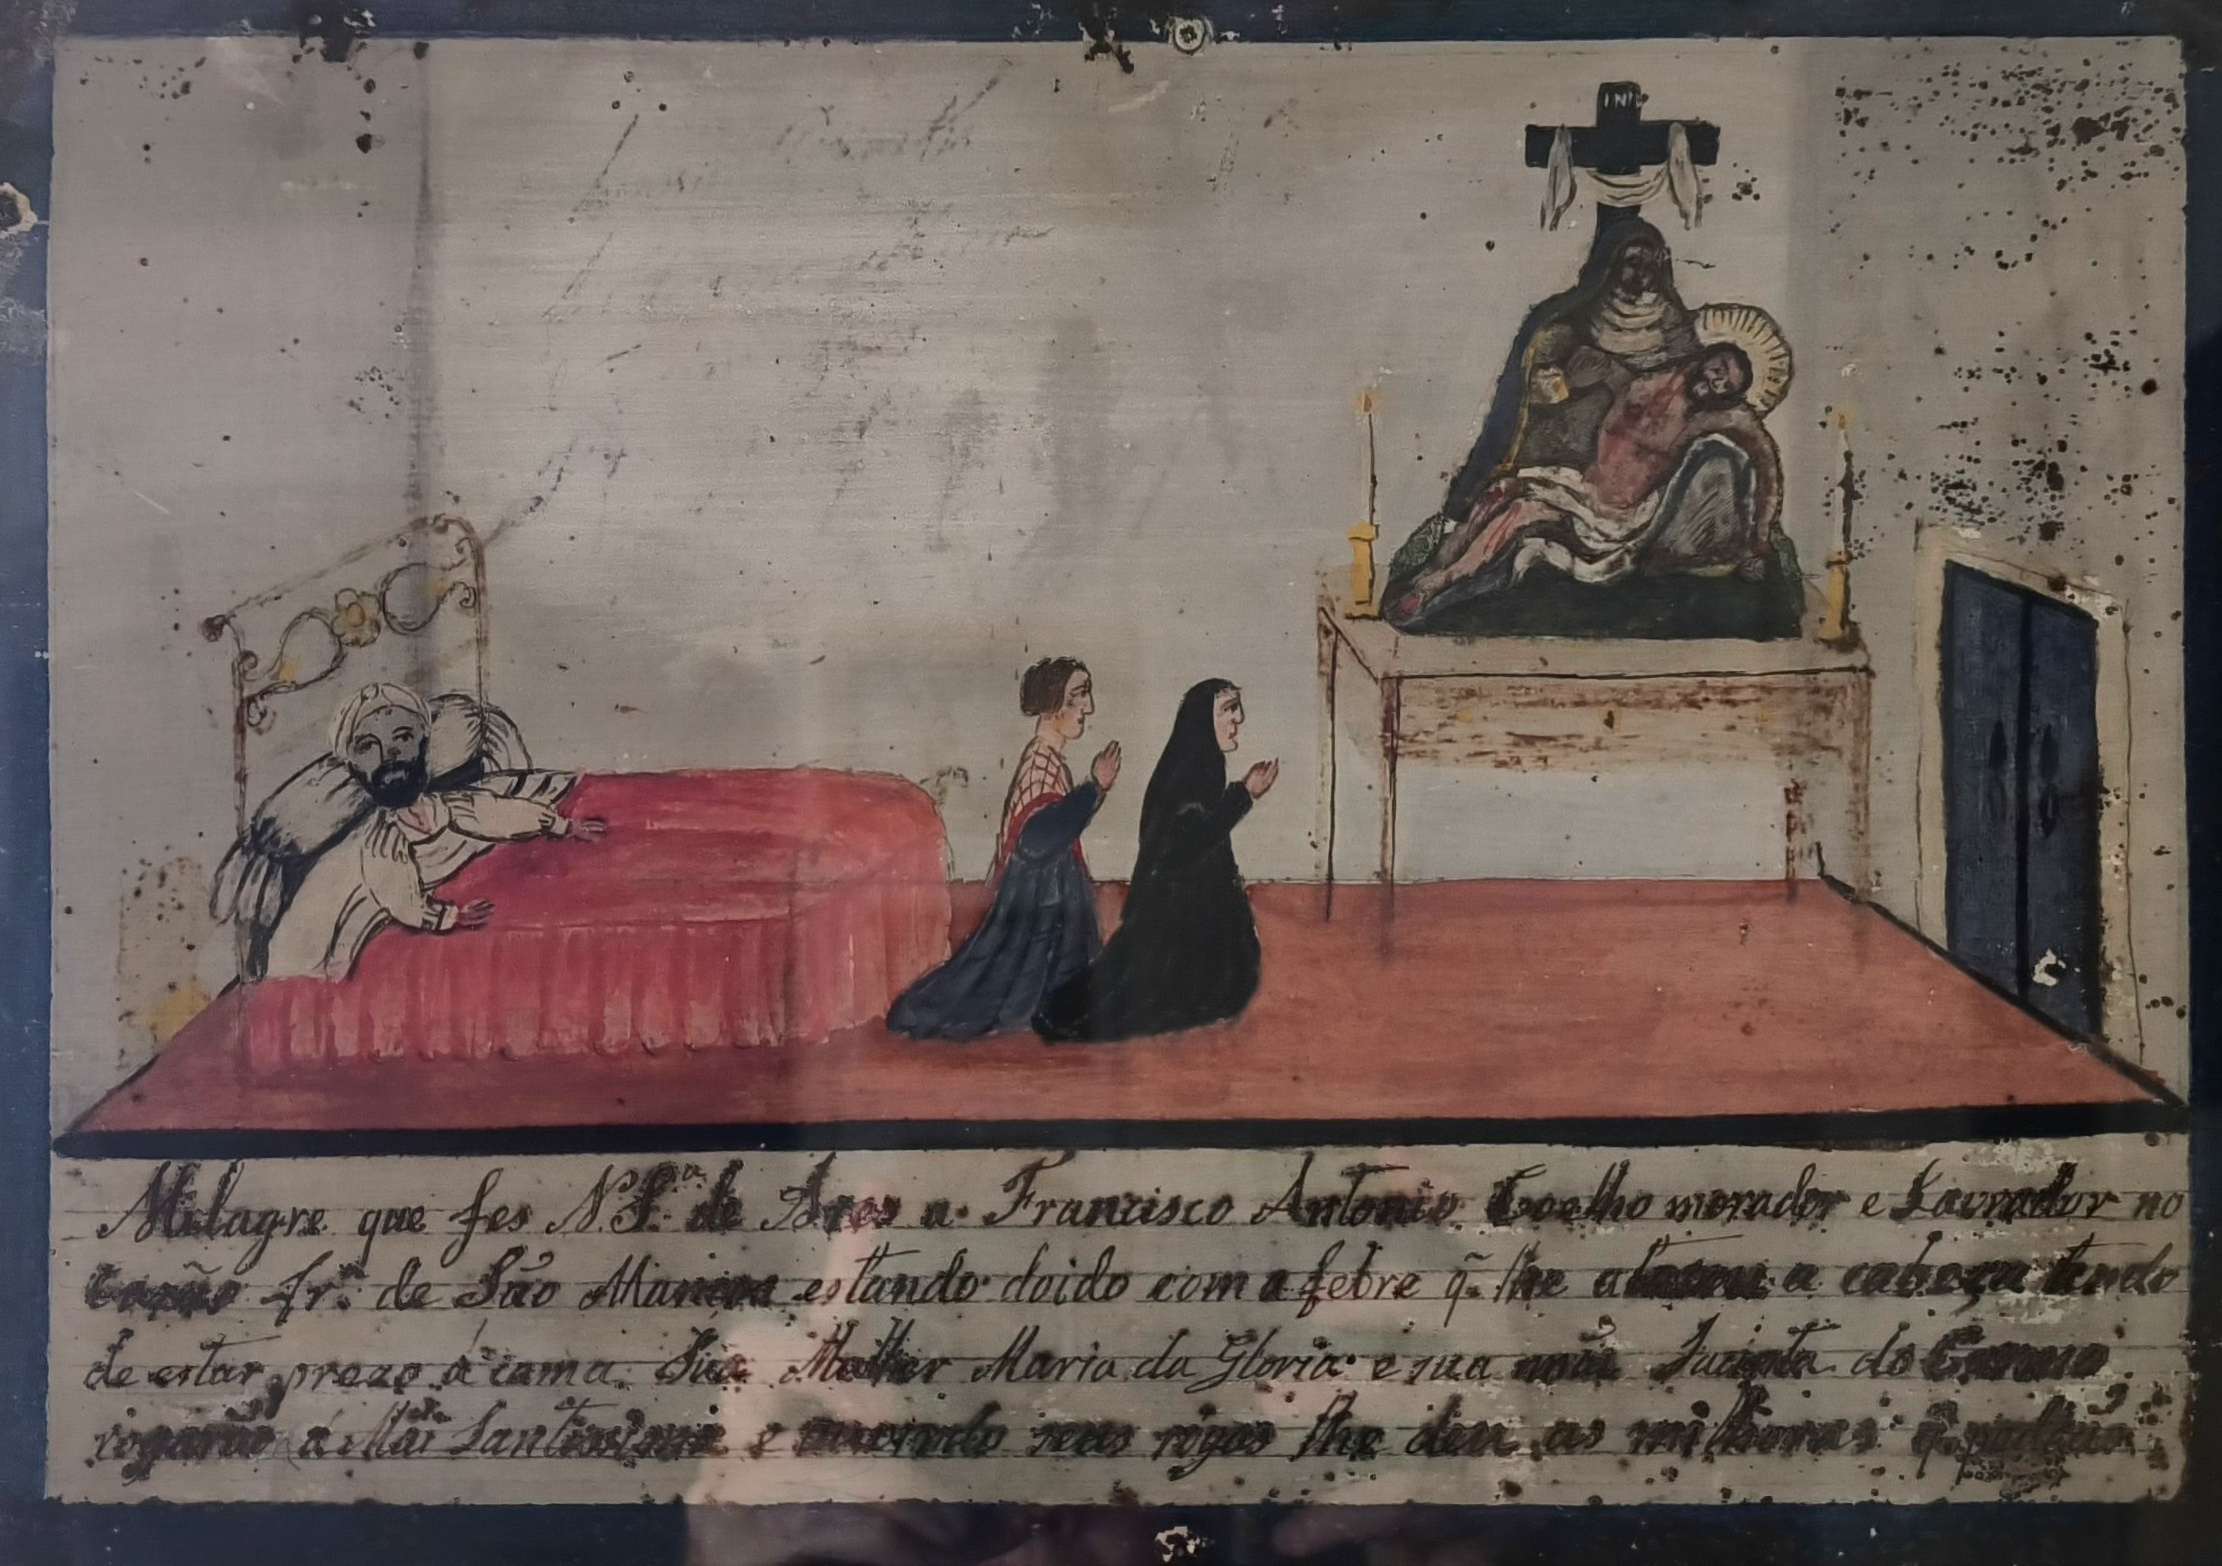 INRI
Milagre que fes N. S.ª de Ares a Francisco Antonio Coelho morador e Lavrador no
fr.ª de São Manços estando doido com a febre q. lhe a cabeça tendo
de estar prezo á cama. Sua Mulher Maria da Gloria e sua mai Jacinta do Carmo
rogarão á Mãi Santissima e ouvindo seus rogos lhe deu as milhoras q. pedião